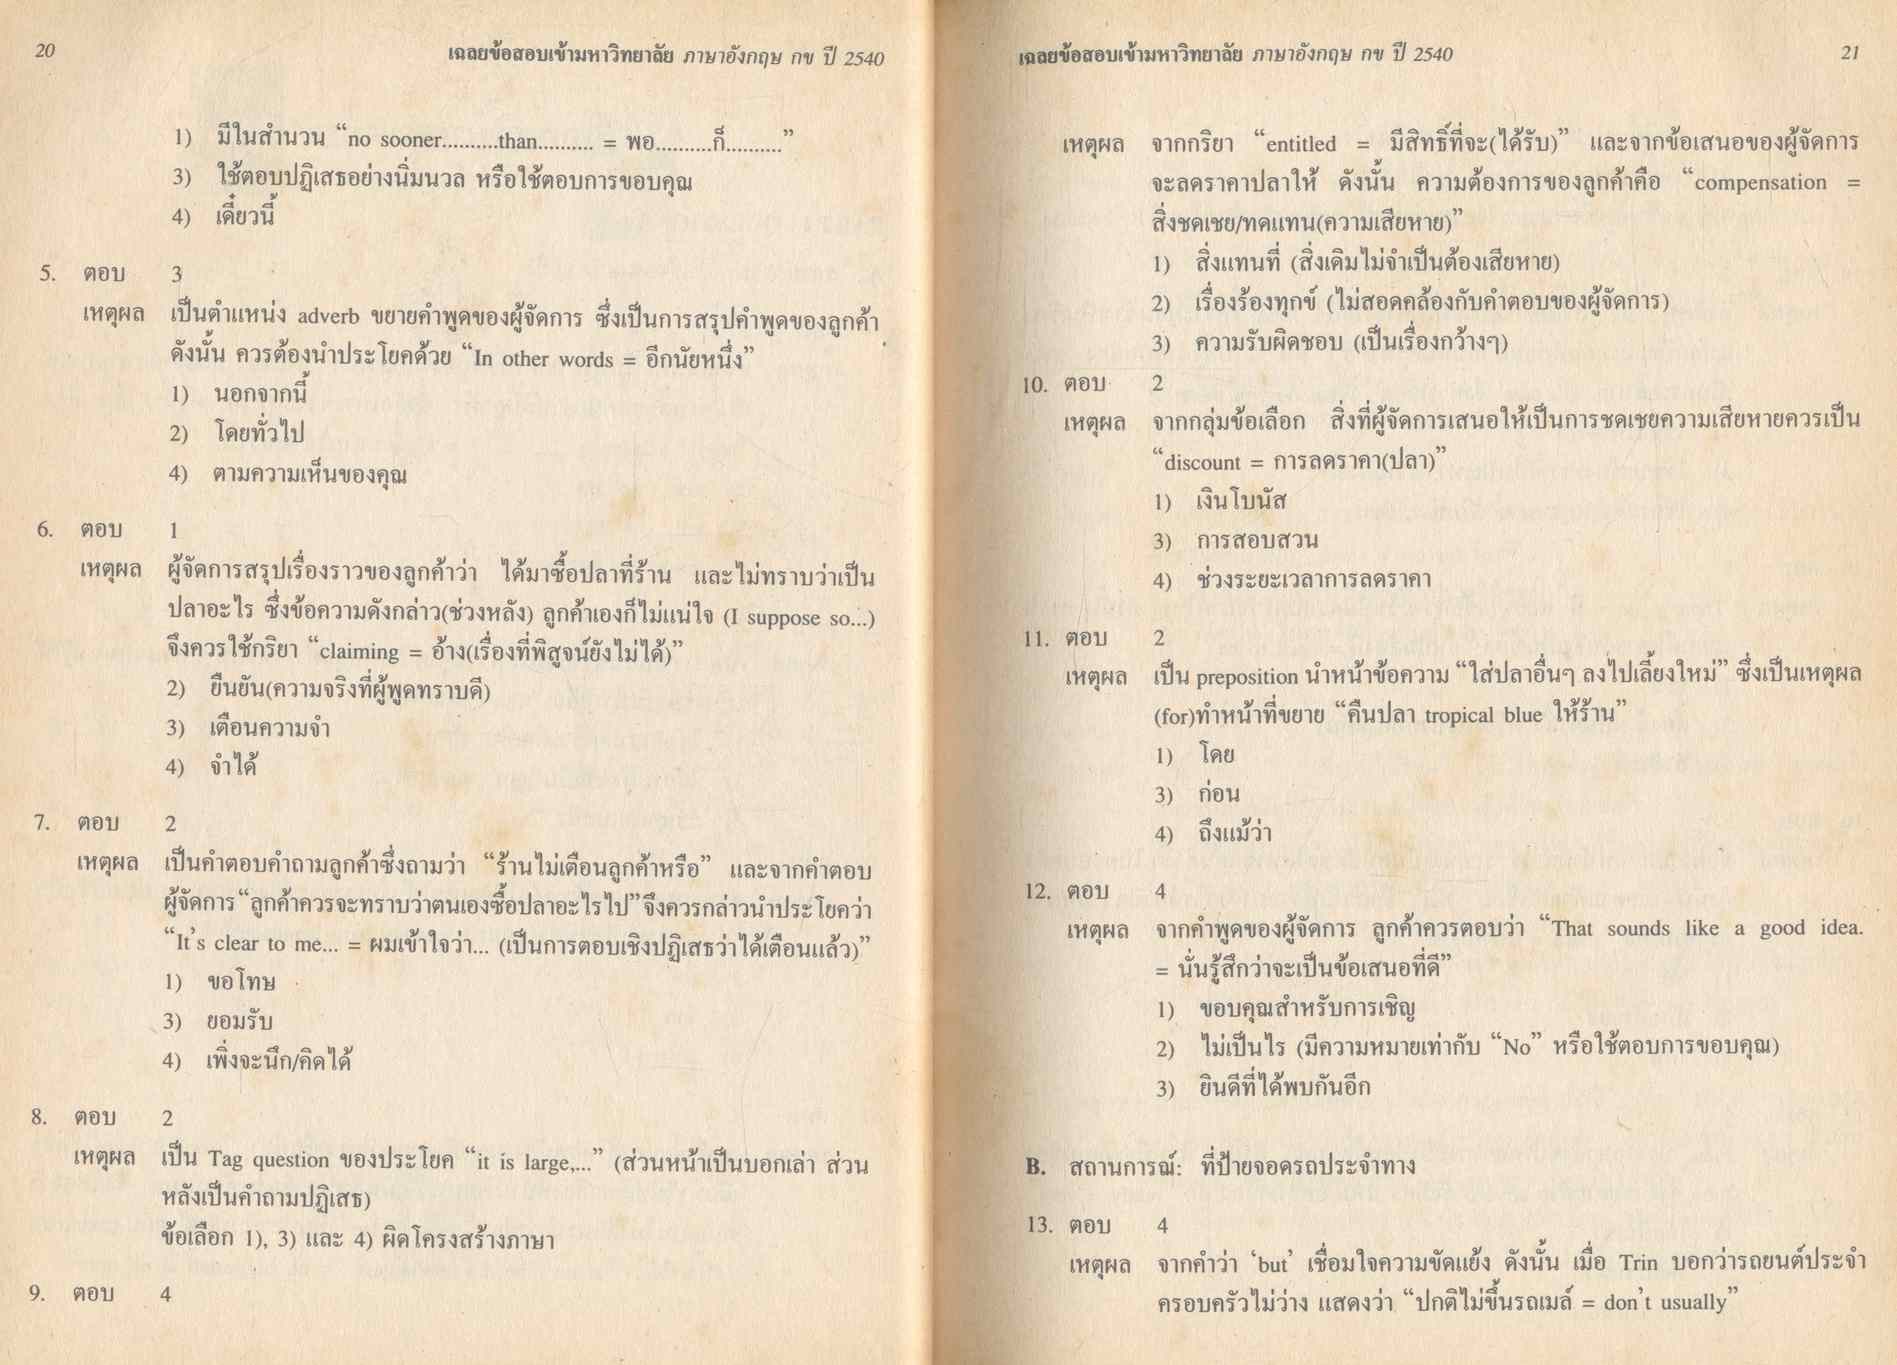 20
เฉลยข้อสอบเข้ามหาวิทยาลัย ภาษาอังกฤษ กข ปี 2540
1) มีในสำนวน “no sooner..........than.......... = พอ..........ก็..........”
3) ใช้ตอบปฏิเสธอย่างนิ่มนวล หรือใช้ตอบการขอบคุณ
4) เดี๋ยวนี้
5. ตอบ 3
เหตุผล เป็นตำแหน่ง adverb ขยายคำพูดของผู้จัดการ ซึ่งเป็นการสรุปคำพูดของลูกค้า
ดังนั้น ควรต้องนำประโยคด้วย “In other words = อีกนัยหนึ่ง”
1) นอกจากนี้
2) โดยทั่วไป
4) ตามความเห็นของคุณ
6. ตอบ 1
เหตุผล ผู้จัดการสรุปเรื่องราวของลูกค้าว่า ได้มาซื้อปลาที่ร้าน และไม่ทราบว่าเป็น
ปลาอะไร ซึ่งข้อความดังกล่าว(ช่วงหลัง) ลูกค้าเองก็ไม่แน่ใจ (I suppose so...)
จึงควรใช้กริยา “claiming = อ้าง(เรื่องที่พิสูจน์ยังไม่ได้)”
2) ยืนยัน(ความจริงที่ผู้พูดทราบดี)
3) เตือนความจำ
4) จำได้
7. ตอบ 2
เหตุผล เป็นคำตอบคำถามลูกค้าซึ่งถามว่า “ร้านไม่เตือนลูกค้าหรือ” และจากคำตอบ
ผู้จัดการ“ลูกค้าควรจะทราบว่าตนเองซื้อปลาอะไรไป”จึงควรกล่าวนำประโยคว่า
“It's clear to me... = ผมเข้าใจว่า... (เป็นการตอบเชิงปฏิเสธว่าได้เตือนแล้ว)”
1) ขอโทษ
3) ยอมรับ
4) เพิ่งจะนึก/คิดได้
8. ตอบ 2
เหตุผล เป็น Tag question ของประโยค “it is large,...” (ส่วนหน้าเป็นบอกเล่า ส่วน
หลังเป็นคำถามปฏิเสธ)
ข้อเลือก 1), 3) และ 4) ผิดโครงสร้างภาษา
9. ตอบ 4
เฉลยข้อสอบเข้ามหาวิทยาลัย ภาษาอังกฤษ กข ปี 2540
21
เหตุผล จากกริยา “entitled = มีสิทธิ์ที่จะ(ได้รับ)” และจากข้อเสนอของผู้จัดการ
จะลดราคาปลาให้ ดังนั้น ความต้องการของลูกค้าคือ “compensation =
สิ่งชดเชย/ทดแทน(ความเสียหาย)”
1) สิ่งแทนที่ (สิ่งเดิมไม่จำเป็นต้องเสียหาย)
2) เรื่องร้องทุกข์ (ไม่สอดคล้องกับคำตอบของผู้จัดการ)
3) ความรับผิดชอบ (เป็นเรื่องกว้างๆ)
10. ตอบ 2
เหตุผล จากกลุ่มข้อเลือก สิ่งที่ผู้จัดการเสนอให้เป็นการชดเชยความเสียหายควรเป็น
“discount = การลดราคา(ปลา)”
1) เงินโบนัส
3) การสอบสวน
4) ช่วงระยะเวลาการลดราคา
11. ตอบ 2
เหตุผล เป็น preposition นำหน้าข้อความ “ใส่ปลาอื่นๆ ลงไปเลี้ยงใหม่” ซึ่งเป็นเหตุผล
(for)ทำหน้าที่ขยาย “คืนปลา tropical blue ให้ร้าน”
1) โดย
3) ก่อน
4) ถึงแม้ว่า
12. ตอบ 4
เหตุผล จากคำพูดของผู้จัดการ ลูกค้าควรตอบว่า “That sounds like a good idea.
= นั่นรู้สึกว่าจะเป็นข้อเสนอที่ดี”
1) ขอบคุณสำหรับการเชิญ
2) ไม่เป็นไร (มีความหมายเท่ากับ “No” หรือใช้ตอบการขอบคุณ)
3) ยินดีที่ได้พบกันอีก
B. สถานการณ์: ที่ป้ายจอดรถประจำทาง
13. ตอบ 4
เหตุผล จากคำว่า ‘but’ เชื่อมใจความขัดแย้ง ดังนั้น เมื่อ Trin บอกว่ารถยนต์ประจำ
ครอบครัวไม่ว่าง แสดงว่า “ปกติไม่ขึ้นรถเมล์ = don't usually”